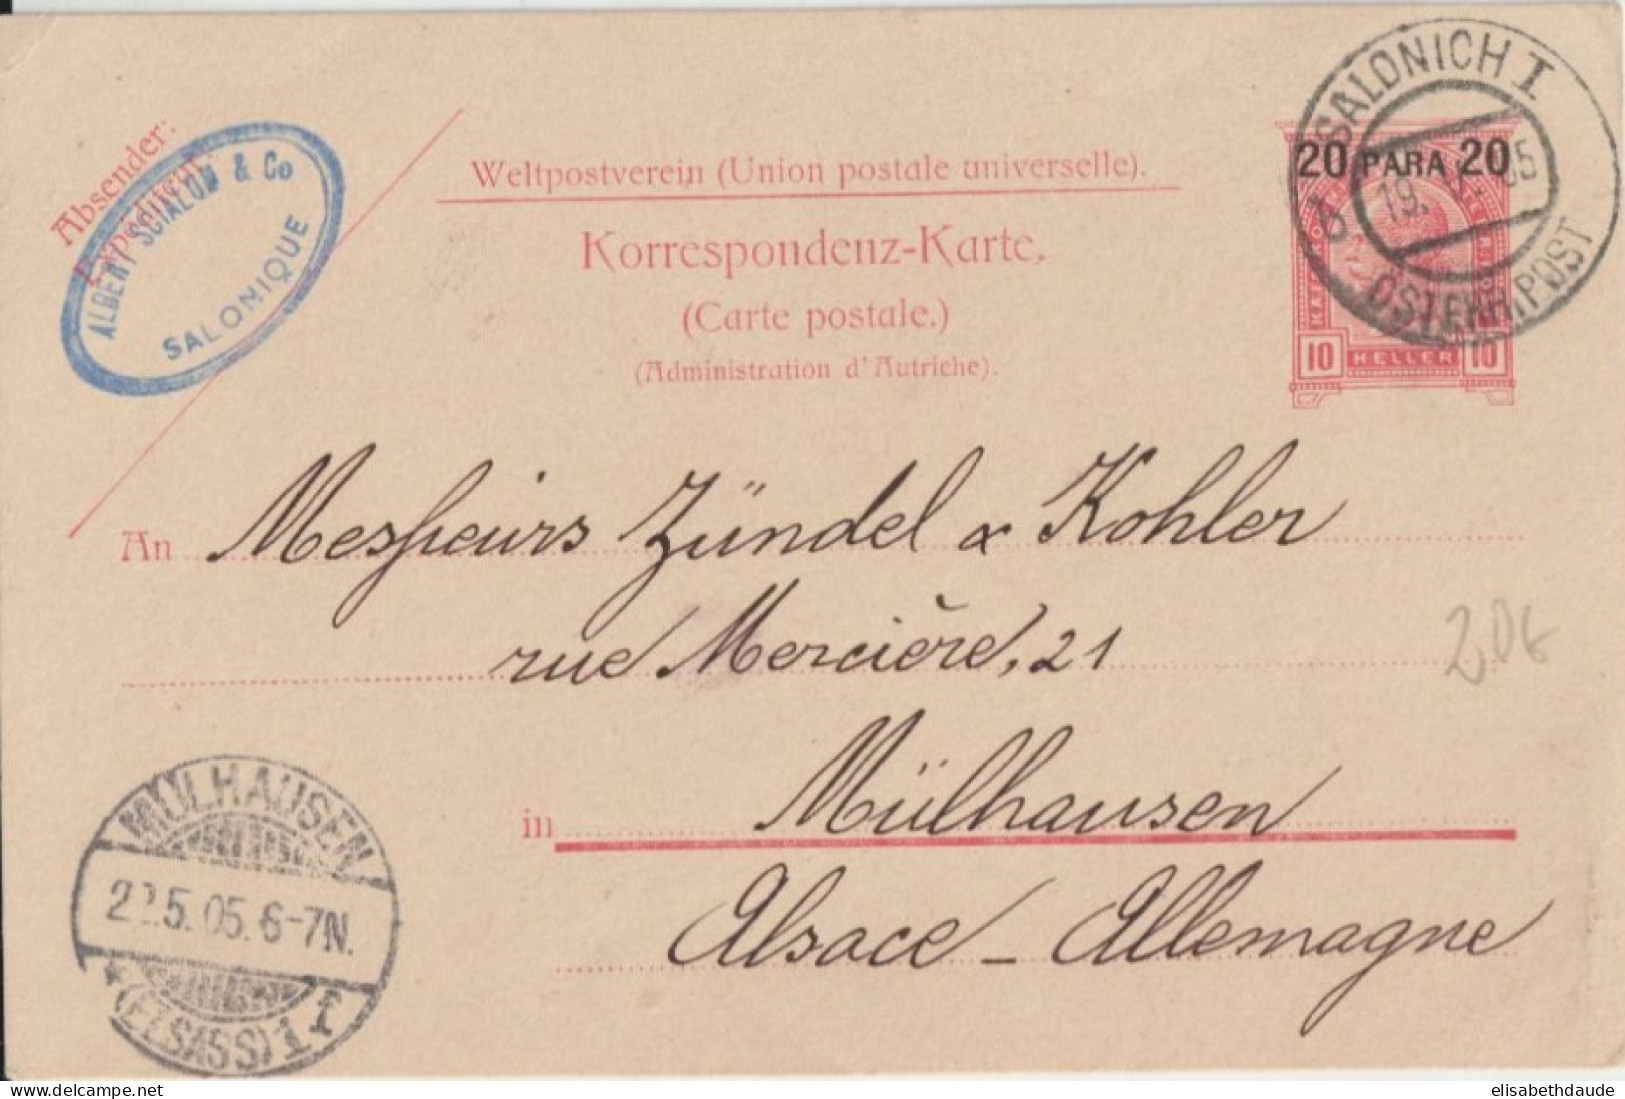 Absender:
ALBERT SCIALOM & Co
SALONIQUE
Weltpostverein (Union postale universelle).
Korrespondenz-Karte.
(Carte postale.)
(Administration d'Autriche).
SALONICH I
20 PARA 20
19. 05
ÖSTERR.POST
10 HELLER 10
An Messieurs Zündel & Kohler
rue Mercière, 21
in Mülhausen
Alsace - Allemagne
206
MÜLHAUSEN
5.05.6-7N.
(ELSASS) 1 f
delcampe.net
elisabethdaude